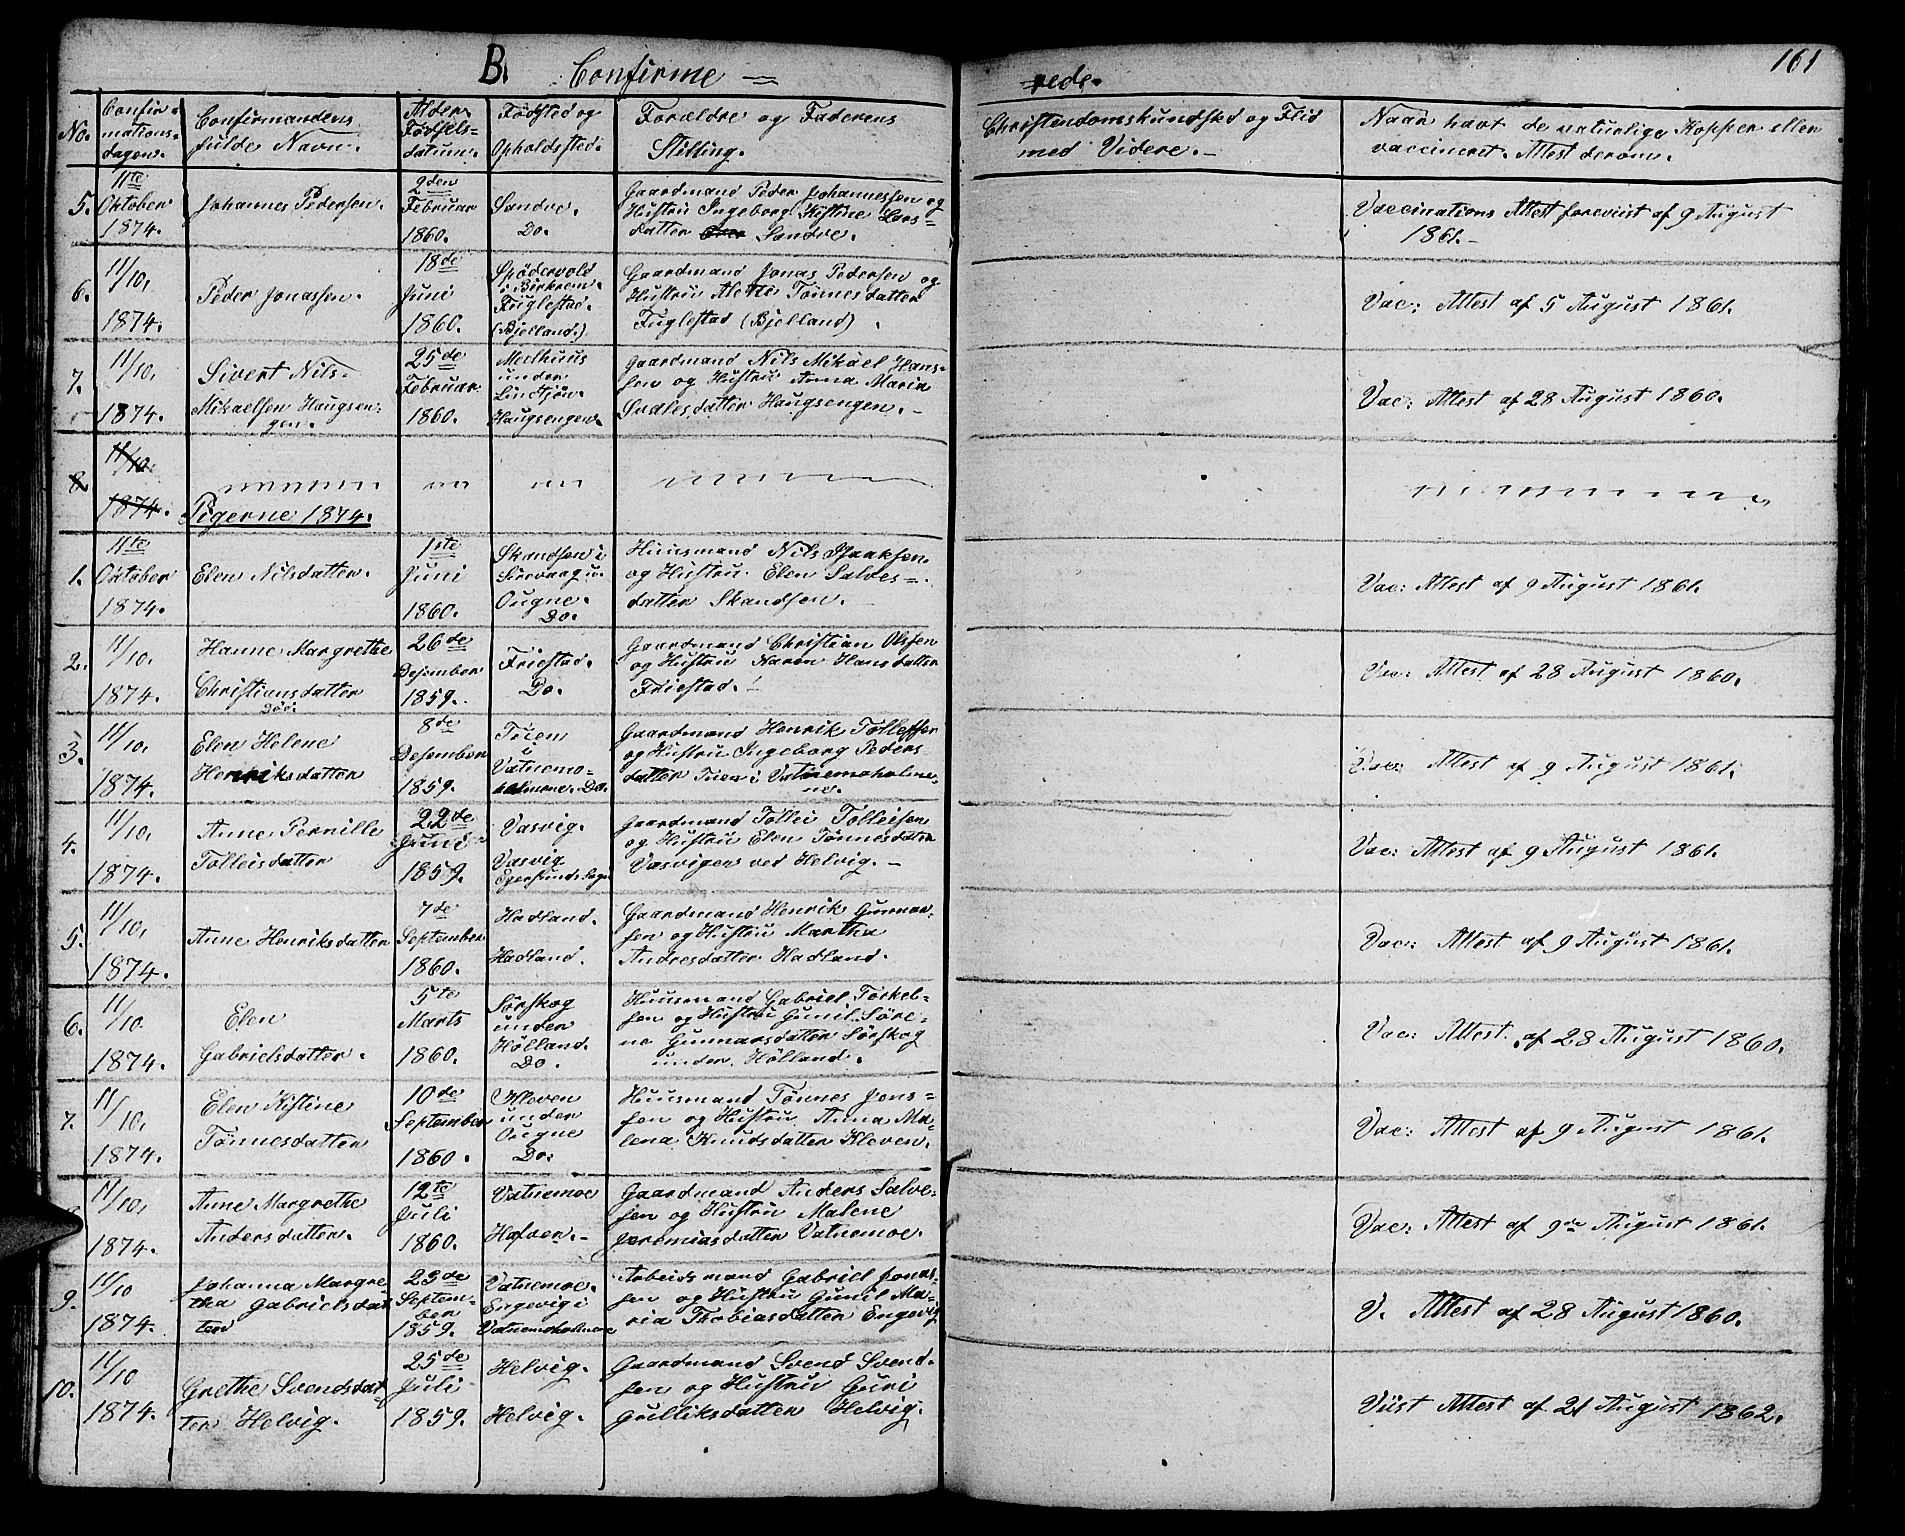 B. Confirme = rede.
161
No.
Confir-
mations-
dagen.
Confirmandens
fulde Navn.
Alder.
Fødsels-
datum.
Fødsted og
Opholdsted.
Forældre og Faderens
Stilling.
Christendomskundskab og Flid
med Videre.
Naar havt de naturlige Kopper eller
vaccineret. Attest derom.
5.
11te
Oktober
1874.
Johannes Pedersen.
2den
Februar
1860.
Sandve.
Do.
Gaardmand Peder Johannessen og
Hustru Ingeborg Kistine Lars-
datter Sandve.
Vaccinations Attest foreviist af 9 August
1861.
6.
11/10.
1874.
Peder Jonassen.
18de
Juni
1860.
Spødervold
i Birkrem.
Fuglestad.
(Bjelland.)
Gaardmand Jonas Pedersen og
Hustru Alethe Tønnesdatter
Fuglestad (Bjelland).
Vac: Attest af 5 August 1861.
7.
11/10.
1874.
Sivert Nils-
Mikaelsen Haugsen-
gen.
25de
Februar
1860.
Medhuus
under
Lindtjørn.
Haugsengen.
Gaardmand Nils Mikael Hans-
sen og Hustru Anna Maria
Sadlesdatter Haugsengen.
Vac: Attest af 28 August 1860.
8.
11/10.
1874.
Pigerne 1874.
1.
11te
Oktober
1874.
Elen Nilsdatter.
1ste
Juni
1860.
Skandsen i
Sirevaag u.
Ougne.
Do.
Huusmand Nils Isaaksen
og Hustru Elen Salves-
datter Skandsen.
Vac: Attest af 9 August 1861.
2.
11/10.
1874.
Hanne Margrethe
Christiansdatter
26de
Desember
1859.
Friestad.
Do.
Gaardmand Christian Olssen
og Hustru Karen Hansdatter
Friestad.
Vac: Attest af 28 August 1860.
3.
11/10.
1874.
Elen Helene
Henriksdatter
8de
Desember
1859.
Tuien
i
Vatnemo-
holmene. Do.
Gaardmand Henrik Tollefsen
og Hustru Ingeborg Peders-
datter Tuen i Vatnemoholme-
ne.
Vac: Attest af 9 August 1861.
4.
11/10.
1874.
Anne Pernille
Tolleisdatter
22de
Juni
1859.
Vasvig.
Vasvig
Egersunds Sogn
Gaardmand Tollei Tolleisen
og Hustru Elen Tønnesdatter
Vasvigen ved Helvig.
Vac: Attest af 9 August 1861.
5.
11/10.
1874.
Anne Henriksdatter
7de
September
1860.
Hadland.
Hadland.
Gaardmand Henrik Gunnar-
sen og Hustru Martha
Andresdatter Hadland.
Vac: Attest af 9 August 1861.
6.
11/10
1874.
Elen
Gabrielsdatter.
5te
Marts
1860.
Sørskog
under
Hølland.
Do.
Huusmand Gabriel Torkel-
sen og Hustru Gunil Søre-
ne Gunnarsdatter Sørskog
under Hølland.
Vac: Attest af 28 August 1860.
7.
11/10.
1874.
Elen Kistine
Tønnesdatter
10de
September
1860.
Kleven
under
Ougne
Do.
Huusmand Tønnes Jens-
sen og Hustru Anna Ma-
lena Knudsdatter Kleven.
Vac: Attest af 9 August 1861.
11/10.
1874.
Anne Margrethe
Andersdatter.
12te
Juli
1860.
Vatnemoe
Hafven.
Gaardmand Anders Salve-
sen og Hustru Malene
Jeremiasdatter Vatnemoe.
Vac: Attest af 9de August 1861.
9.
11/10
1874.
Johanna Margre-
tha Gabrielsdat
ter
23de
Septem-
ber
1859.
Vatnemoe.
Engevig i
Vatnemoholmene
Arbeidsmand Gabriel Jonas-
sen og Hustru Gunil Ma-
ria Thobiasdatter Engevig
V. Attest af 28 August 1860.
10.
11/10
1874.
Grethe Svendsdat-
ter Helvig.
25de
Juli
1859.
Helvig.
Helvig.
Gaardmand Svend Svend-
sen og Hustru Guri
Gulliksdatter Helvig.
Viist Attest af 21 August 1862.